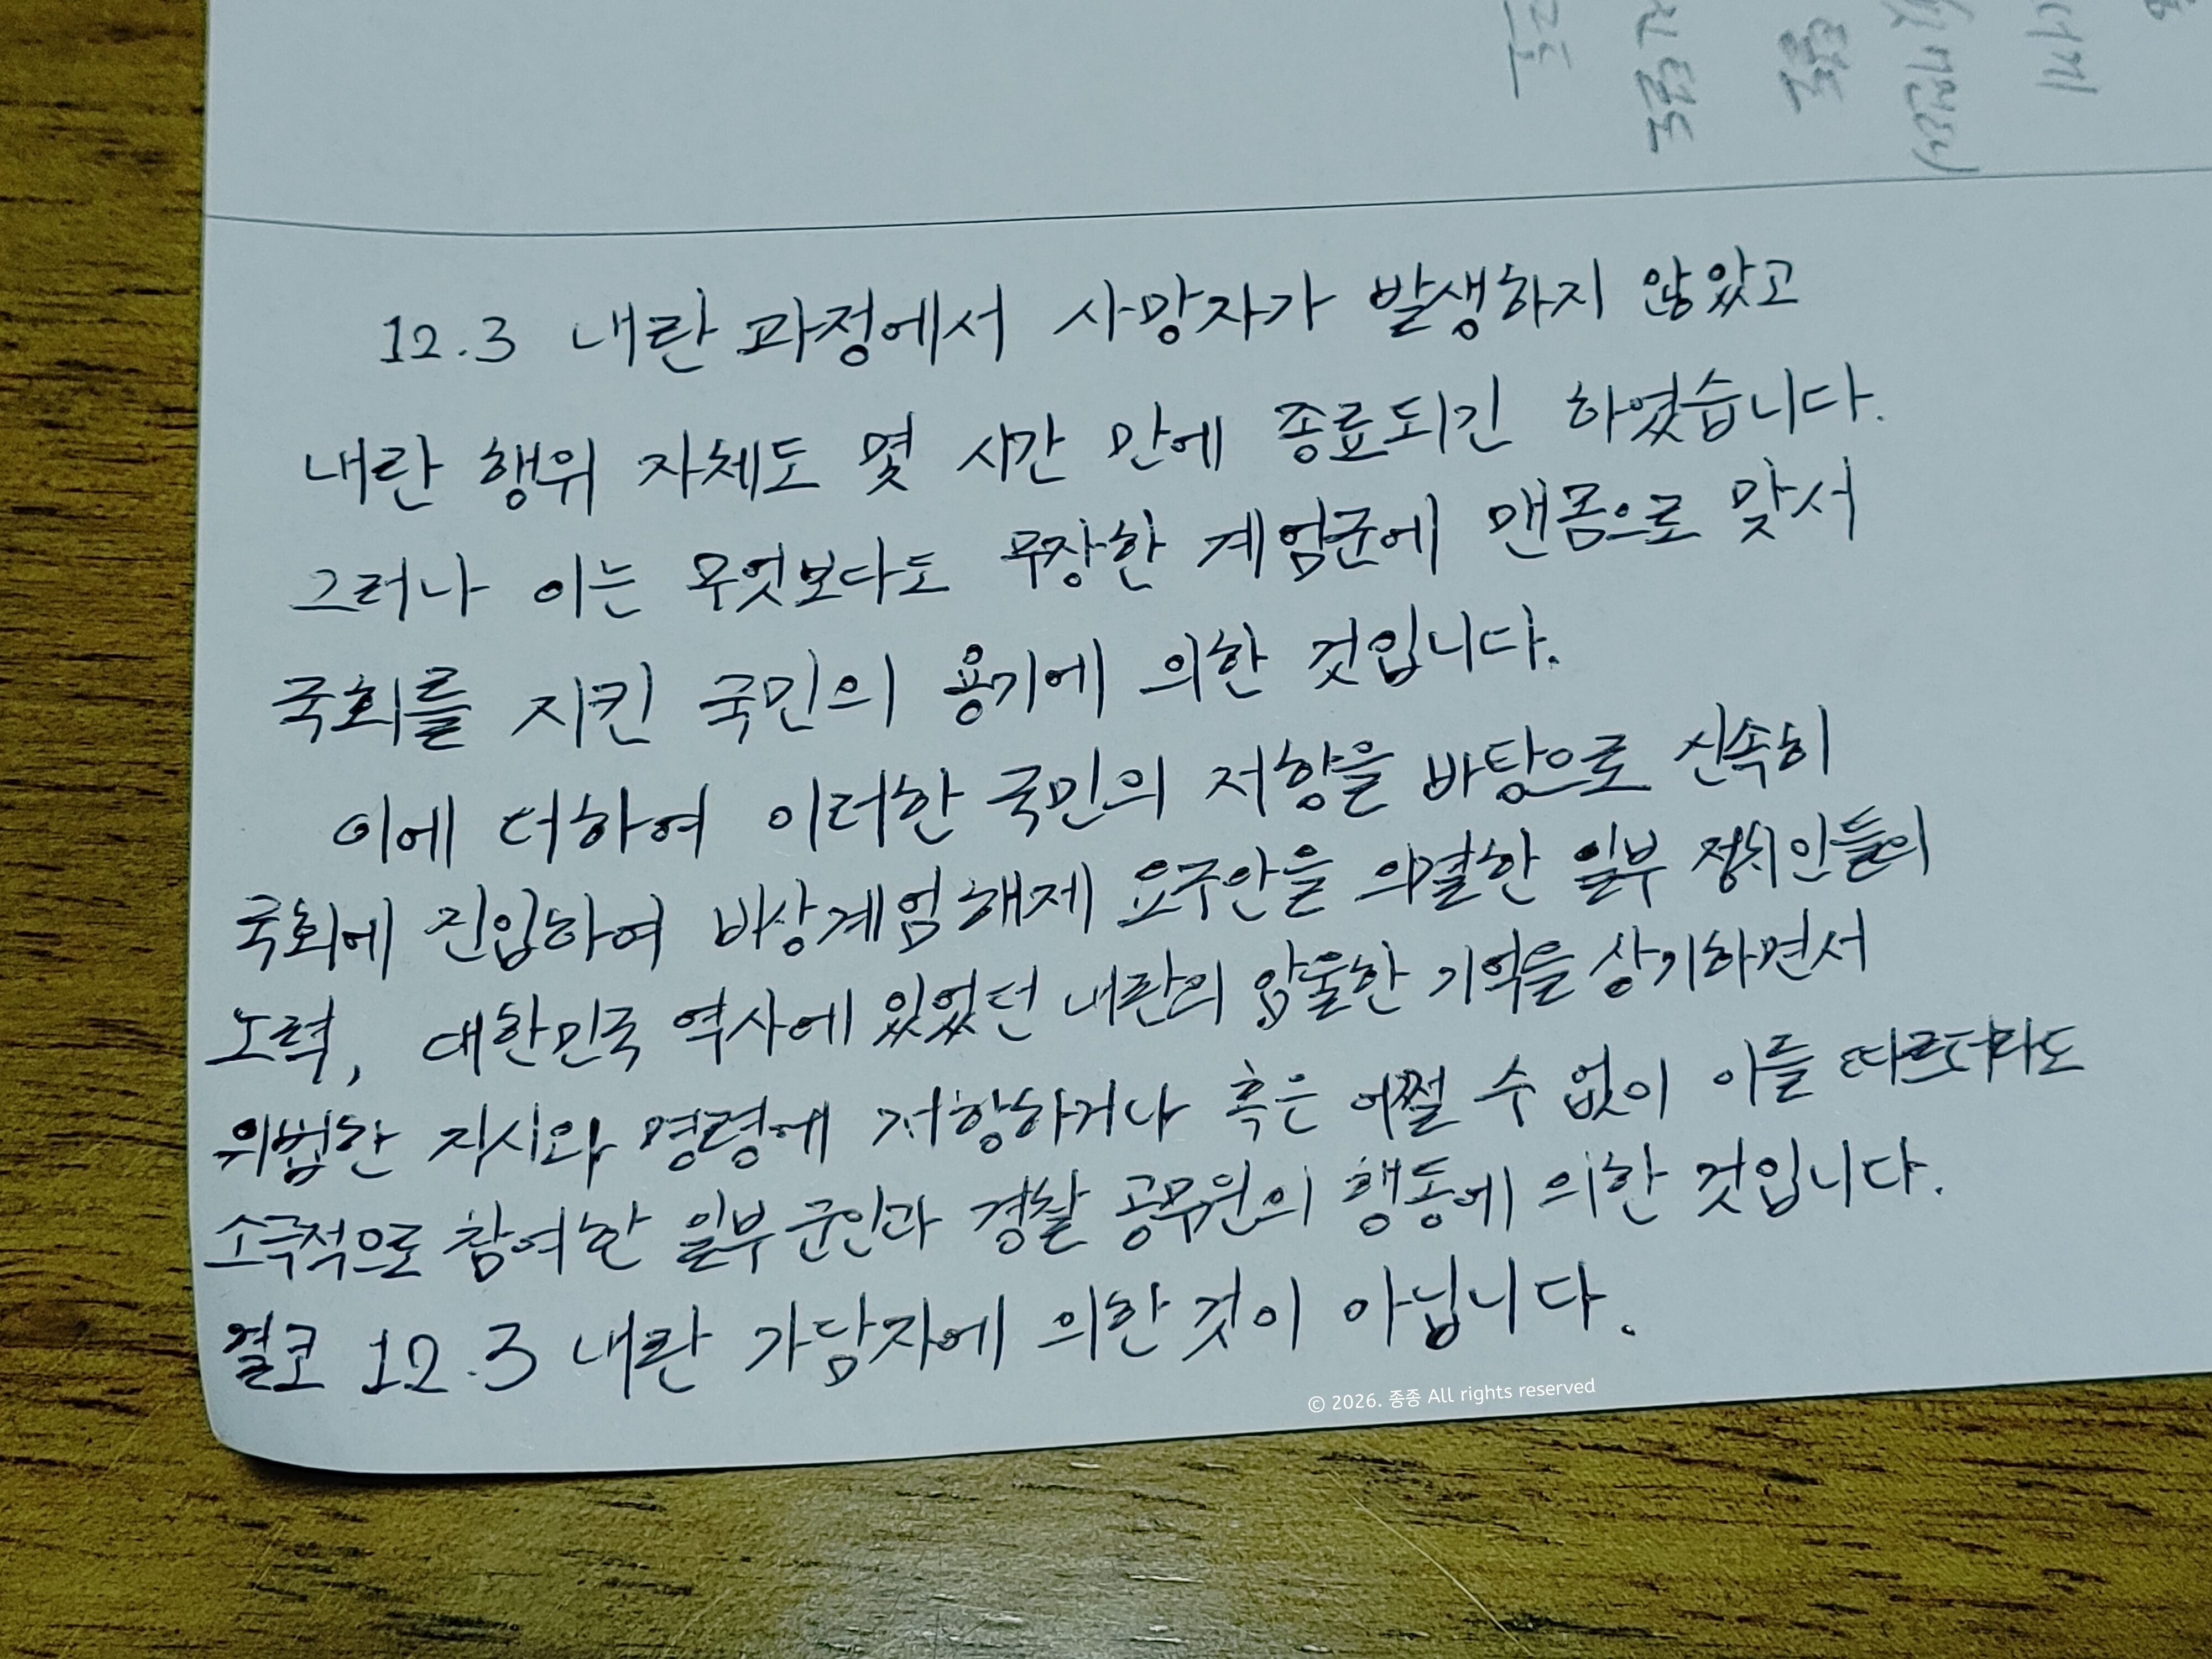 12.3 내란 과정에서 사망자가 발생하지 않았고
내란 행위 자체도 몇 시간 만에 종료되긴 하였습니다.
그러나 이는 무엇보다도 무장한 계엄군에 맨몸으로 맞서
국회를 지킨 국민의 용기에 의한 것입니다.
이에 더하여 이러한 국민의 저항을 바탕으로 신속히
국회에 진입하여 비상계엄해제 요구안을 의결한 일부 정치인들의
노력, 대한민국 역사에 있었던 내란의 암울한 기억을 상기하면서
위법한 지시와 명령에 저항하거나 혹은 어쩔 수 없이 이를 따르더라도
소극적으로 참여한 일부 군인과 경찰 공무원의 행동에 의한 것입니다.
결코 12.3 내란 가담자에 의한 것이 아닙니다.
© 2026. 종종 All rights reserved